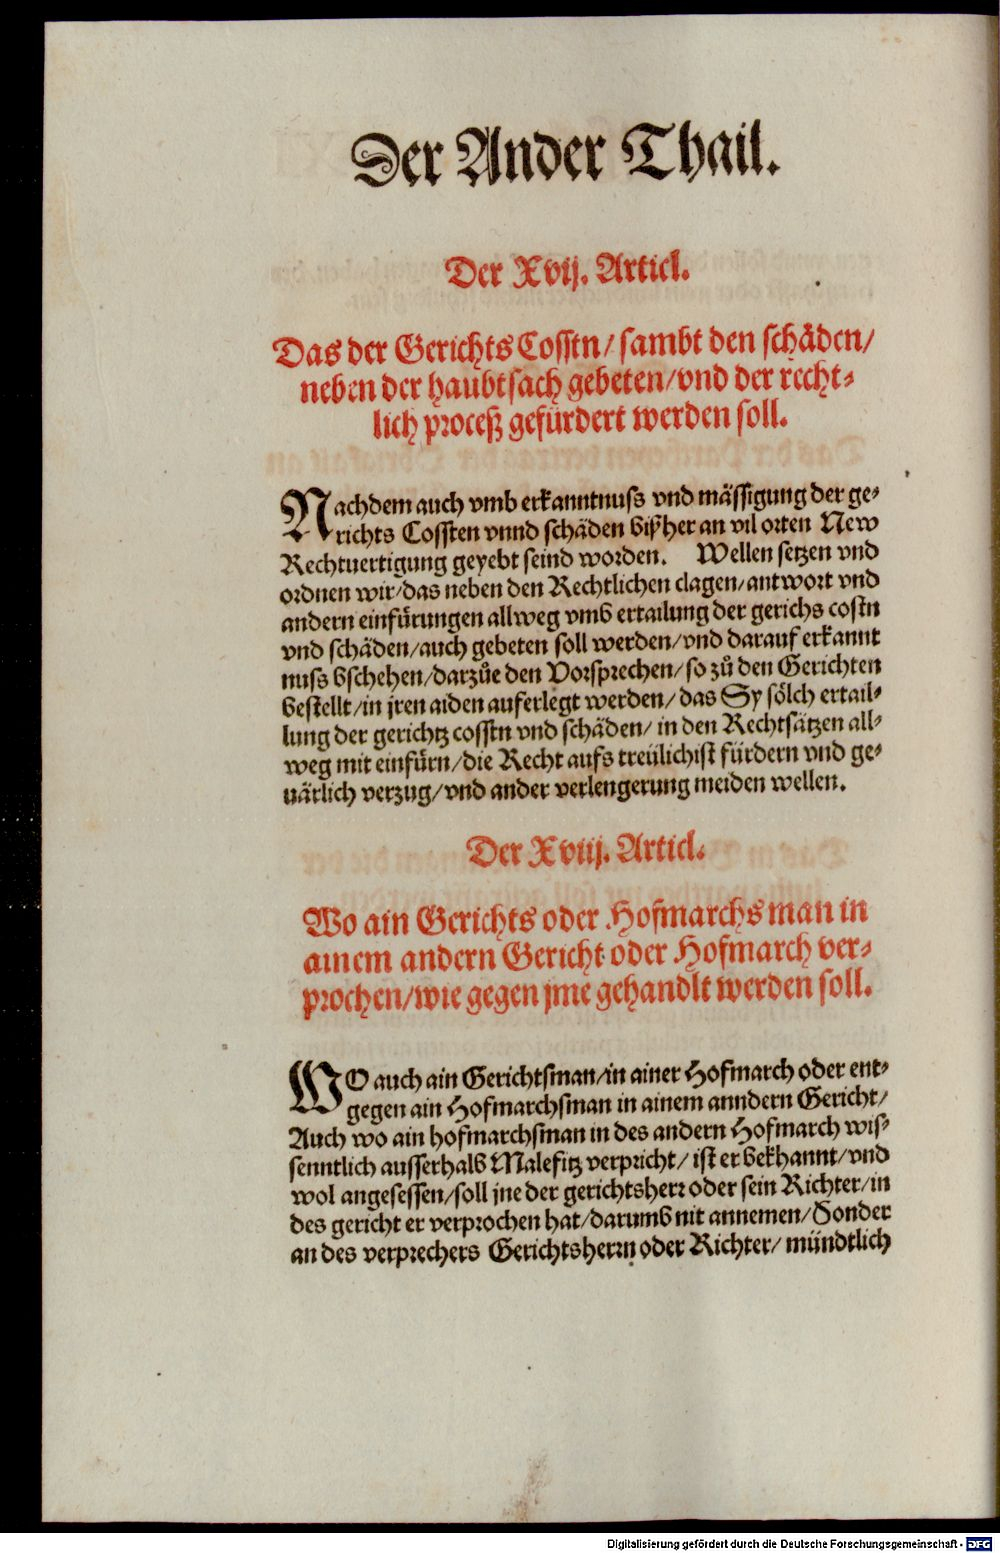 Der Ander Thail.
Der Xvij. Articl.
Das der Gerichts Cosstn/ sambt den schäden/
neben der haubtsach gebeten/ vnd der recht⸗
lich proceß gefürdert werden soll.
Nachdem auch vmb erkanntnuss vnd mässigung der ge⸗
richts Cossten vnnd schäden bißher an vil orten New
Rechtuertigung geyebt seind worden. Wellen setzen vnd
ordnen wir/ das neben den Rechtlichen clagen/ antwort vnd
andern einfürungen allweg vmb ertailung der gerichs costn
vnd schäden/ auch gebeten soll werden/ vnd darauf erkannt
nuss bschehen/ darzůe den Vorsprechen/ so zů den Gerichten
bestellt/ in jren aiden auferlegt werden/ das Sy sölch ertail⸗
lung der gerichtz cosstn vnd schäden/ in den Rechtsätzen all⸗
weg mit einfürn/ die Recht aufs treülichist fürdern vnd ge⸗
uärlich verzug/ vnd ander verlengerung meiden wellen.
Der Xviij. Articl.
Wo ain Gerichts oder Hofmarchs man in
ainem andern Gericht oder Hofmarch ver⸗
prochen/ wie gegen jme gehandlt werden soll.
WO auch ain Gerichtsman/ in ainer Hofmarch oder ent⸗
gegen ain Hofmarchsman in ainem anndern Gericht/
Auch wo ain hofmarchsman in des andern Hofmarch wis⸗
senntlich ausserhalb Malefitz verpricht/ ist er bekhannt/ vnd
wol angesessen/ soll jne der gerichtsherr oder sein Richter/ in
des gericht er verprochen hat/ darumb nit annemen/ Sonder
an des verprechers Gerichtsherrn oder Richter/ mündtlich
Digitalisierung gefördert durch die Deutsche Forschungsgemeinschaft - DFG